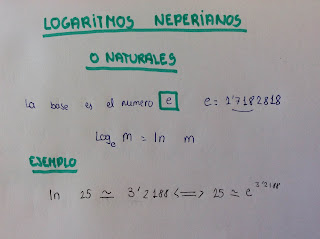 LOGARITMOS NEPERIANOS
O NATURALES
La base es el numero e e = 2'7182818
Log_e m = ln m
EJEMPLO
ln 25 ≃ 3'2188 <=> 25 ≃ e^3'2188